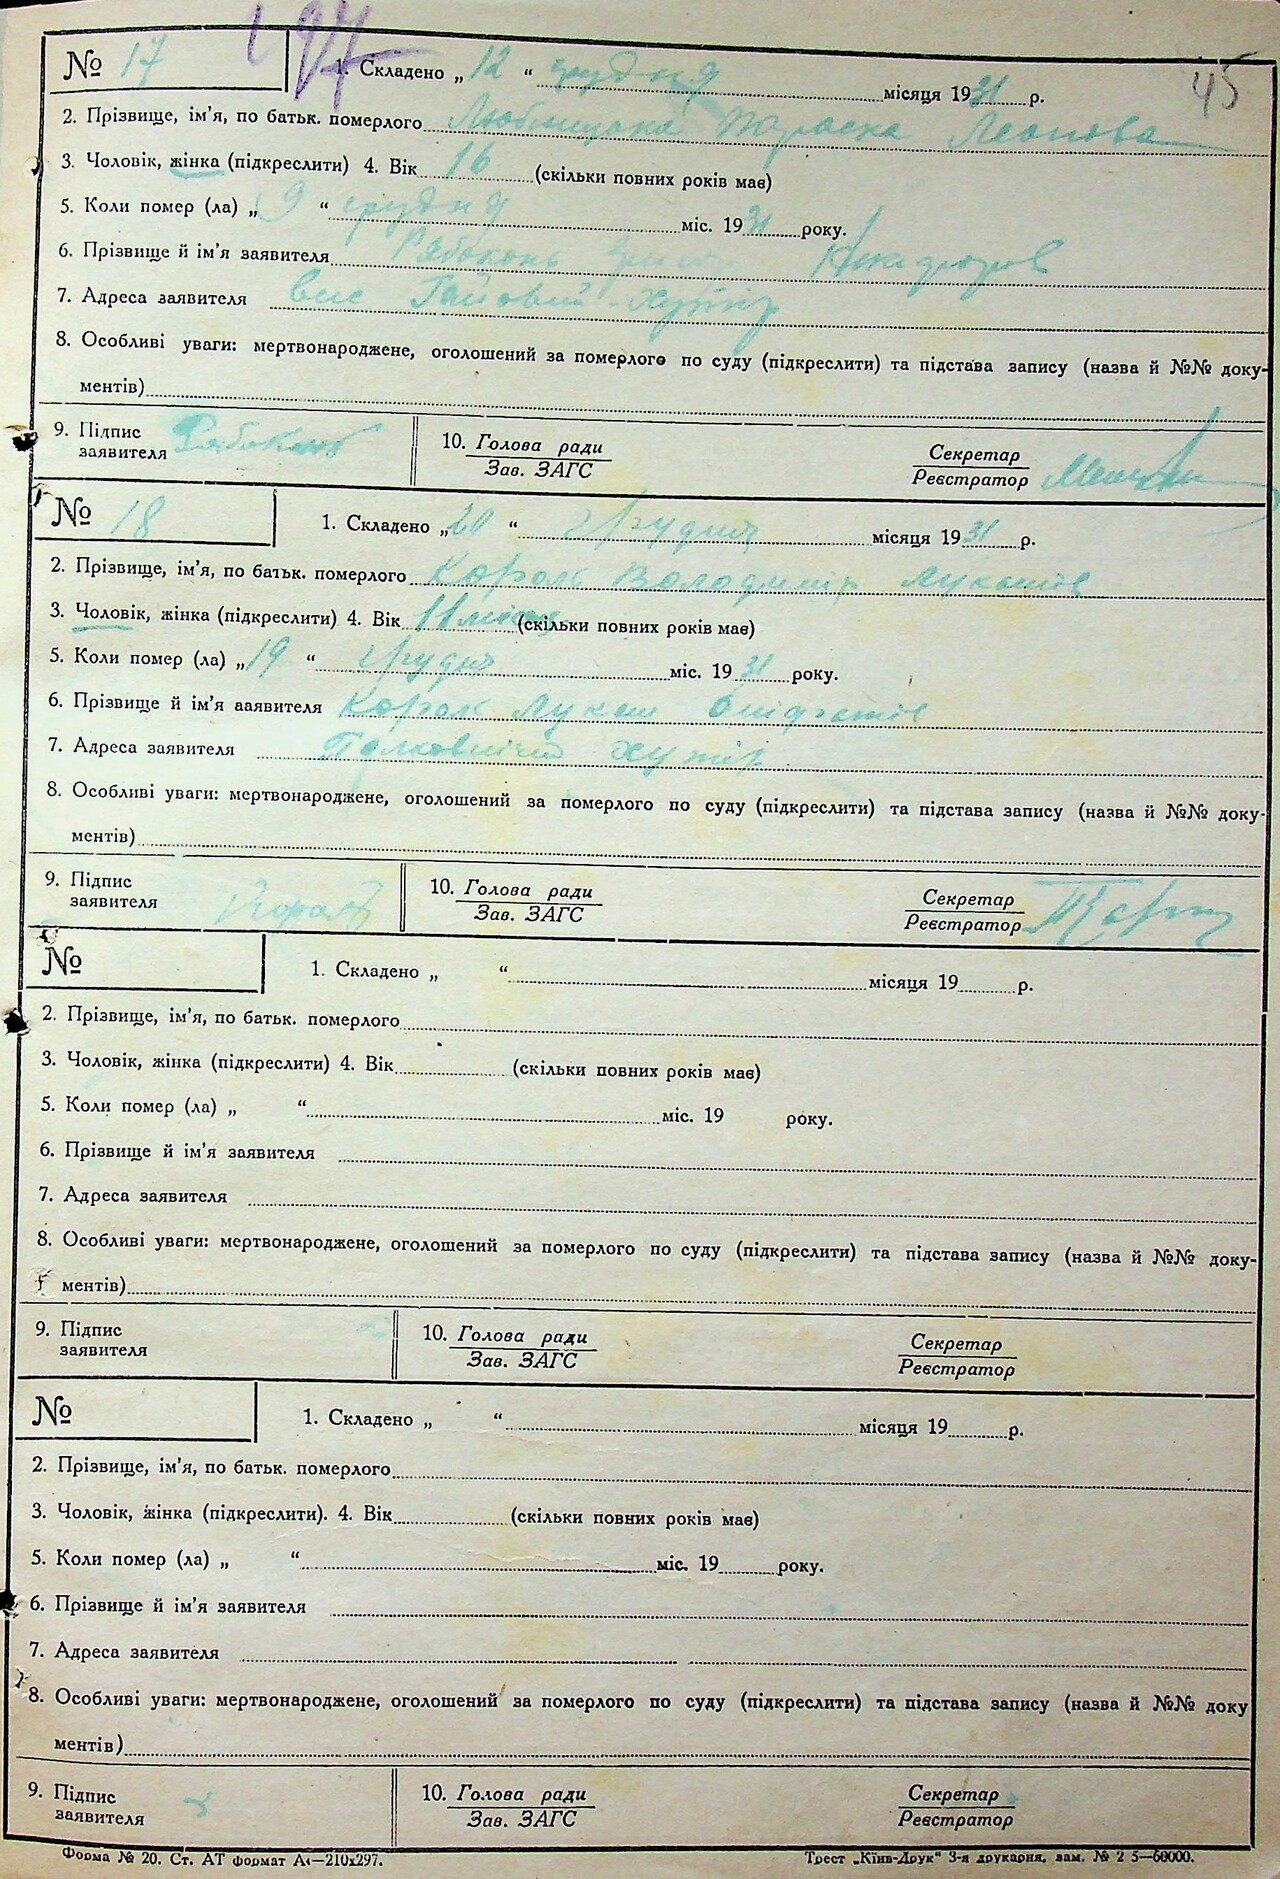 45
№ 17 1. Складено „ 12 “ грудня місяця 1931 р.
2. Прізвище, ім'я, по батьк. померлого Параска
3. Чоловік, жінка (підкреслити) 4. Вік 16 (скільки повних років має)
5. Коли помер (ла) „ 9 “ грудня міс. 1931 року.
6. Прізвище й ім'я заявителя Рябоконь
7. Адреса заявителя вис Гайовий-Хутір
8. Особливі уваги: мертвонароджене, оголошений за померлого по суду (підкреслити) та підстава запису (назва й №№ доку-
ментів)
9. Підпис заявителя Рябоконь 10. Голова ради Зав. ЗАГС Секретар Реєстратор
№ 18 1. Складено „20 “ грудня місяця 1931 р.
2. Прізвище, ім'я, по батьк. померлого Король Володимир Лукашів
3. Чоловік, жінка (підкреслити) 4. Вік 11 місяц (скільки повних років має)
5. Коли помер (ла) „19 “ грудня міс. 1931 року.
6. Прізвище й ім'я ааявителя Король Лукаш
7. Адреса заявителя Полковничий хутір
8. Особливі уваги: мертвонароджене, оголошений за померлого по суду (підкреслити) та підстава запису (назва й №№ доку-
ментів)
9. Підпис заявителя Король 10. Голова ради Зав. ЗАГС Секретар Реєстратор
№ 1. Складено „ “ місяця 19 р.
2. Прізвище, ім'я, по батьк. померлого
3. Чоловік, жінка (підкреслити) 4. Вік (скільки повних років має)
5. Коли помер (ла) „ “ міс. 19 року.
6. Прізвище й ім'я заявителя
7. Адреса заявителя
8. Особливі уваги: мертвонароджене, оголошений за померлого по суду (підкреслити) та підстава запису (назва й №№ доку-
ментів)
9. Підпис заявителя 10. Голова ради Зав. ЗАГС Секретар Реєстратор
№ 1. Складено „ “ місяця 19 р.
2. Прізвище, ім'я, по батьк. померлого
3. Чоловік, жінка (підкреслити). 4. Вік (скільки повних років має)
5. Коли помер (ла) „ “ міс. 19 року.
6. Прізвище й ім'я заявителя
7. Адреса заявителя
8. Особливі уваги: мертвонароджене, оголошений за померлого по суду (підкреслити) та підстава запису (назва й №№ доку
ментів)
9. Підпис заявителя 10. Голова ради Зав. ЗАГС Секретар Реєстратор
Форма № 20. Ст. АТ формат А4—210х297. Трест „Київ-Друк“ 3-я друкарня, зам. № 2 5—60000.